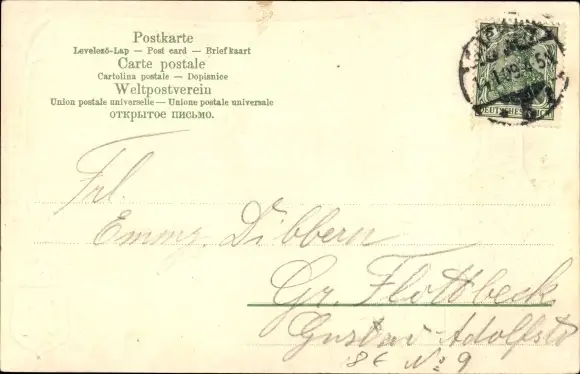 Postkarte
Levelező-Lap — Post card — Briefkaart
Carte postale
Cartolina postale — Dopisnice
Weltpostverein
Union postale universelle — Unione postale universale
ОТКРЫТОЕ ПИСЬМО.
DEUTSCHES REICH
Frl.
Emmy. Dibbern
Gr. Flottbeck
Gustav-Adolfstr
86 No 9